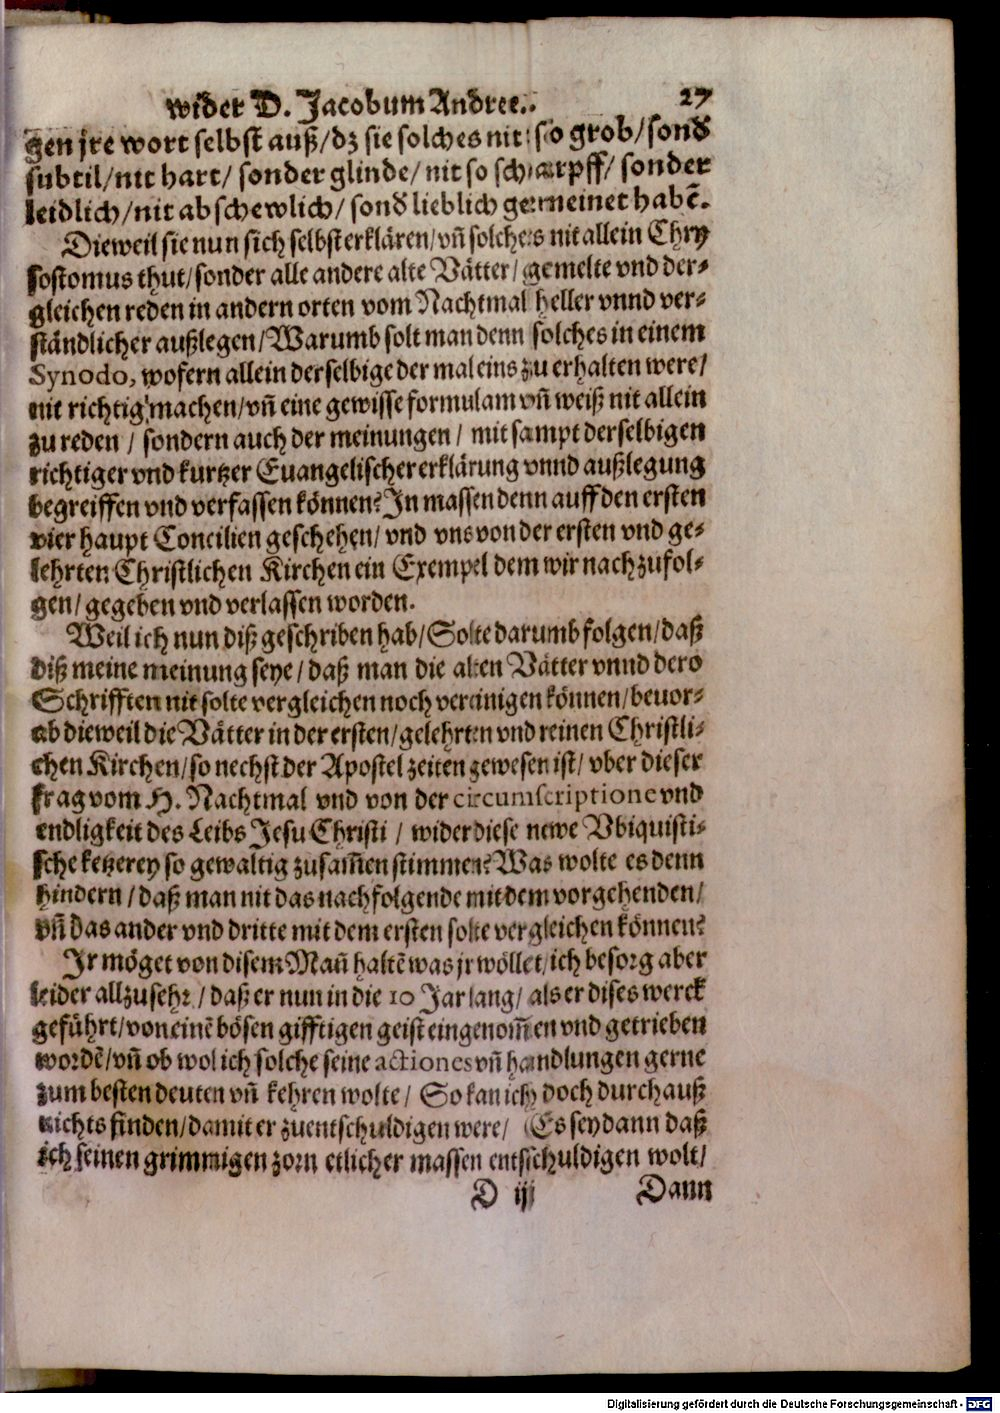 wider D. Jacobum Andree.. 27
gen jre wort selbst auß/ dz sie solches nit so grob/ sond̕
subtil/ nit hart/ sonder glinde/ nit so scharpff/ sonder
leidlich/ nit abschewlich/ sond̕ lieblich gemeinet habē.
Dieweil sie nun sich selbst erklären/ vñ solches nit allein Chry
sostomus thut/ sonder alle andere alte Vätter/ gemelte vnd der-
gleichen reden in andern orten vom Nachtmal heller vnnd ver-
ständlicher außlegen/ Warumb solt man denn solches in einem
Synodo, wofern allein derselbige der mal eins zu erhalten were/
nit richtig machen/ vñ eine gewisse formulam vñ weiß nit allein
zu reden / sondern auch der meinungen / mit sampt derselbigen
richtiger vnd kurtzer Euangelischer erklärung vnnd außlegung
begreiffen vnd verfassen können? In massen denn auff den ersten
vier haupt Concilien geschehen/ vnd vns von der ersten vnd ge-
lehrten Christlichen Kirchen ein Exempel dem wir nachzufol-
gen/ gegeben vnd verlassen worden.
Weil ich nun diß geschriben hab/ Solte darumb folgen/ daß
diß meine meinung seye/ daß man die alten Vätter vnnd dero
Schrifften nit solte vergleichen noch vereinigen können/ beuor-
ab dieweil die Vätter in der ersten/ gelehrten vnd reinen Christli-
chen Kirchen/ so nechst der Apostel zeiten gewesen ist/ vber dieser
frag vom H. Nachtmal vnd von der circumscriptione vnd
endligkeit des Leibs Jesu Christi / wider diese newe Vbiquisti-
sche ketzerey so gewaltig zusam̃en stimmen? Was wolte es denn
hindern / daß man nit das nachfolgende mit dem vorgehenden/
vñ das ander vnd dritte mit dem ersten solte vergleichen können?
Ir möget von disem Mañ haltē was jr wöllet/ ich besorg aber
leider allzusehr / daß er nun in die 10 Jar lang/ als er dises werck
geführt/ von einē bösen gifftigen geist eingenom̃en vnd getrieben
wordē/ vñ ob wol ich solche seine actiones vñ handlungen gerne
zum besten deuten vñ kehren wolte/ So kan ich doch durchauß
nichts finden/ damit er zuentschuldigen were/ Es sey dann daß
ich seinen grimmigen zorn etlicher massen entschuldigen wolt/
D iij Dann
Digitalisierung gefördert durch die Deutsche Forschungsgemeinschaft - DFG